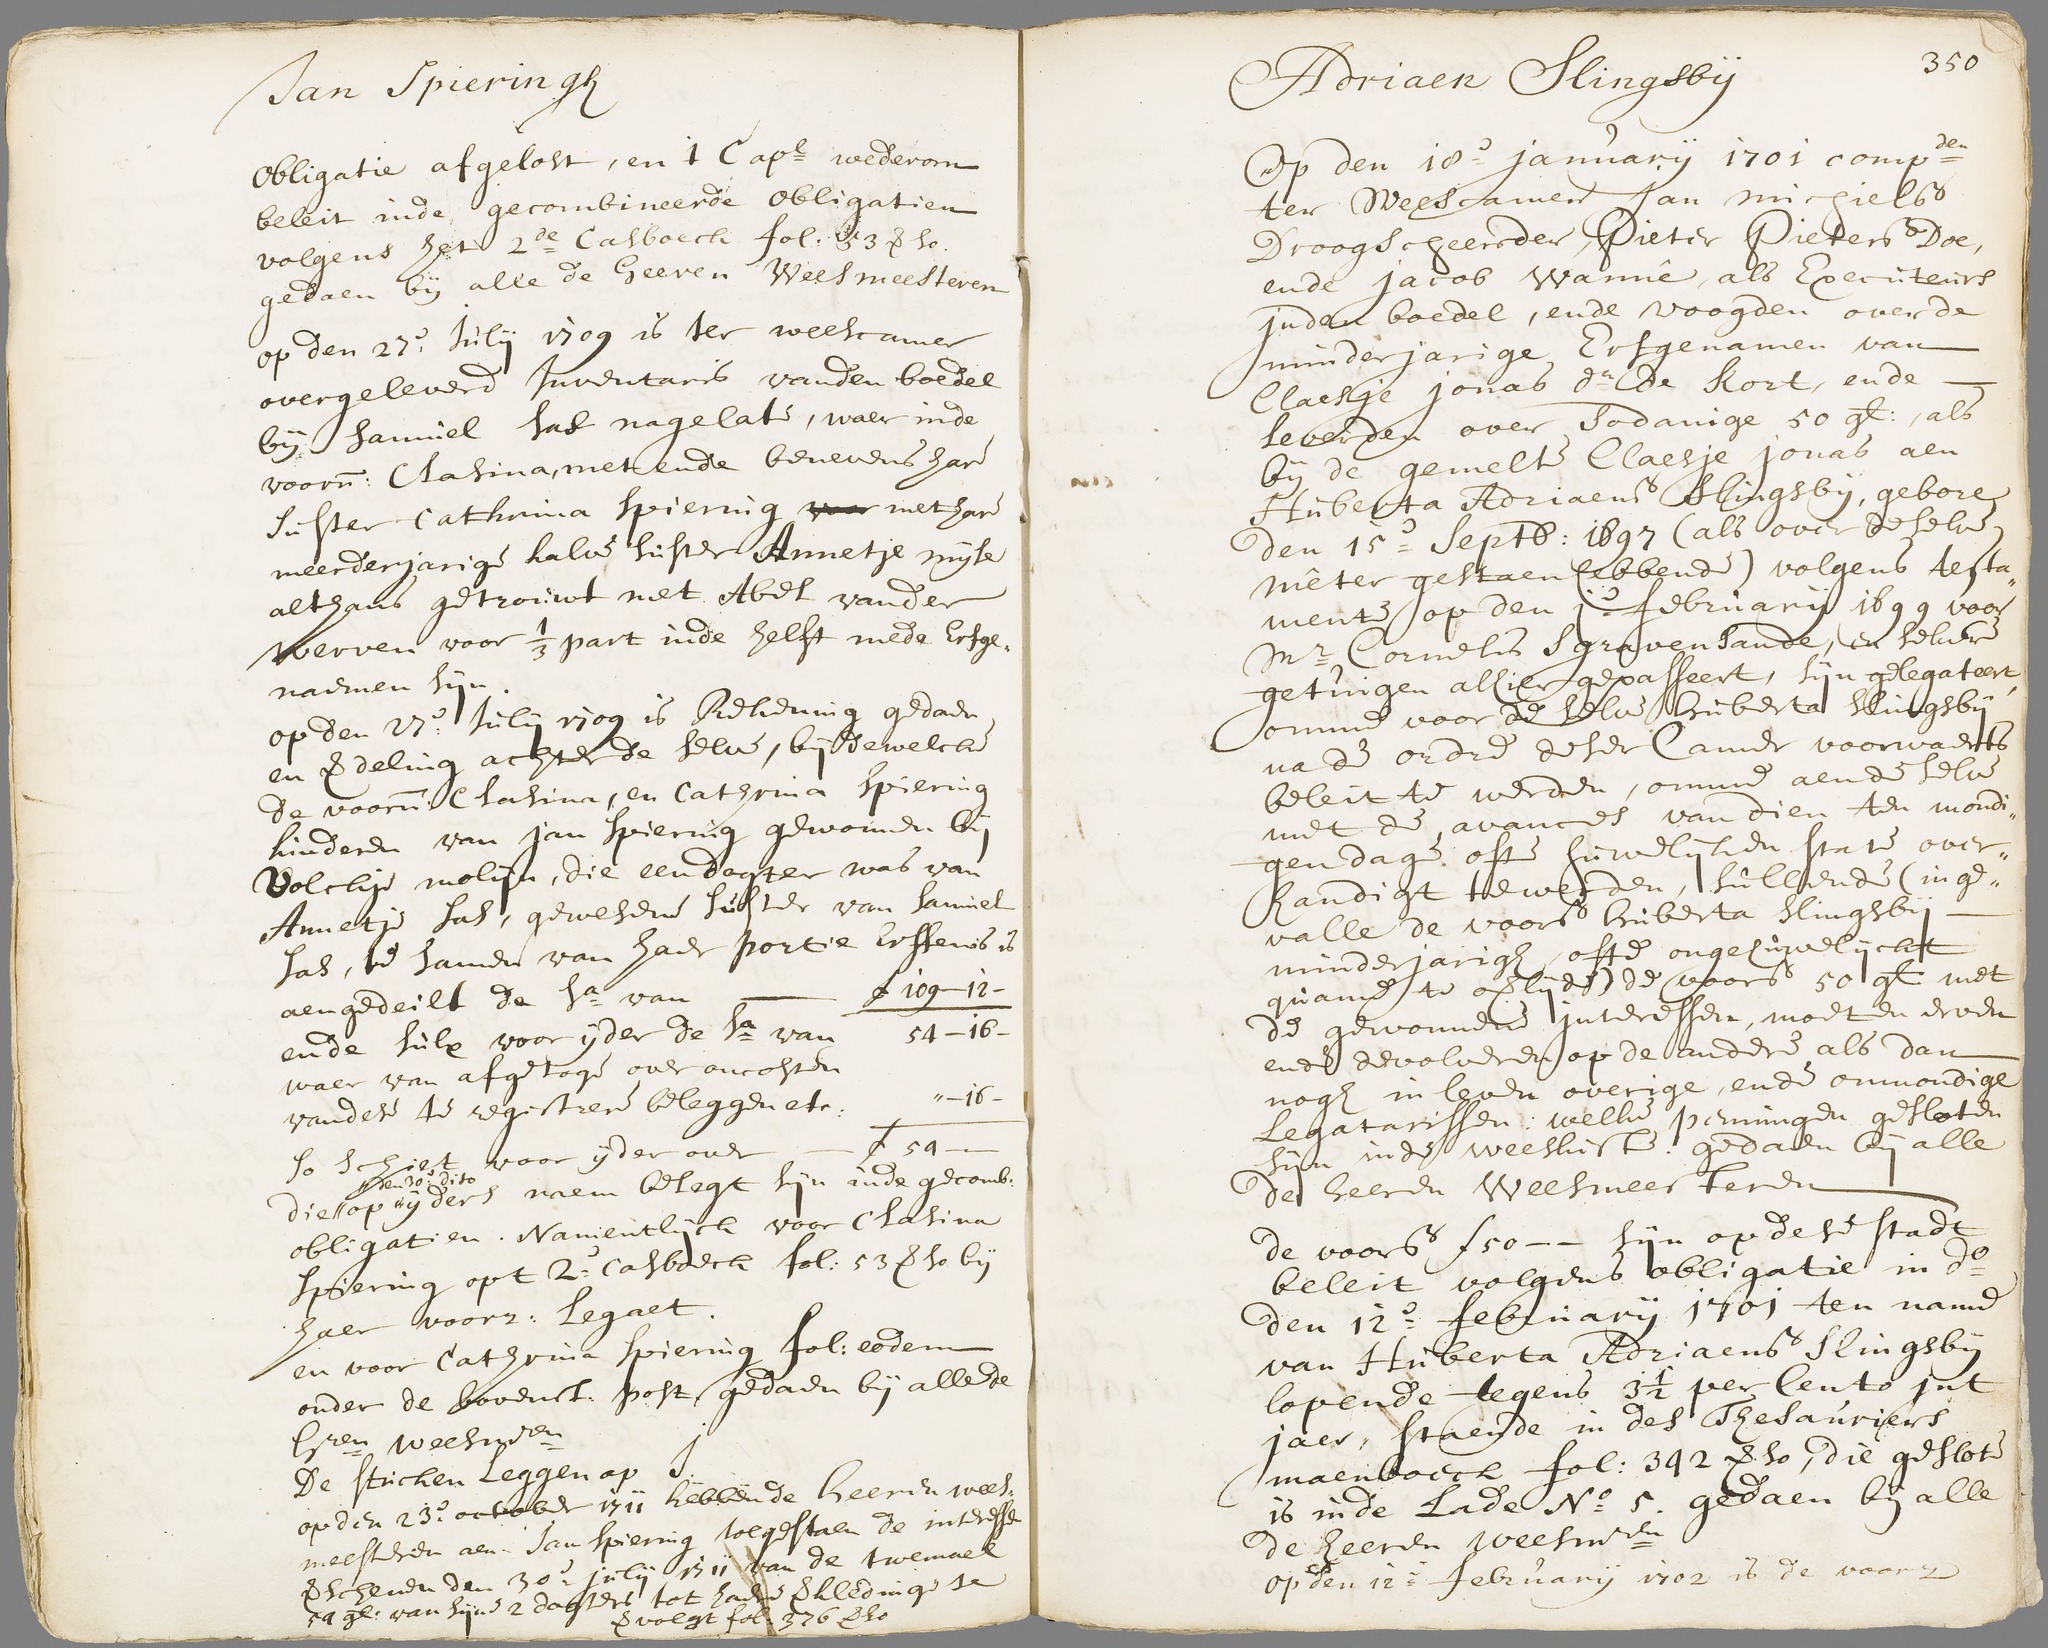 Jan Spieringh
Obligatie afgelost, en 't Capl wederom
beleit inde gecombineerde obligatien
volgens het 2de Casboeck fol: 53 vso.
gedaen bij alle de heeren Weesmeesteren
op den 27: Julij 1709 is ter weescamer
overgeleverd Inventaris vanden boedel
bij Samuel Sas nagelate, waer inde
voorn: Clasina, met ende benevens hare
suster Cathrina Spiering met hare
meerderjarige halve suster Annetje
althans getrouwt met Abel vander
werven voor 1/3 part inde helft mede Erfge„
naemen sijn.
op den 27: Julij 1709 is Rekening gedaen
en vdeling achter de selve, bij dewelcke
de voorn: Clasina, en Cathrina Spiering
kinderen van jan Spiering gewonnen bij
Volckje molijn, die een dogter was van
Annetje Sas, gewesene suster van Samuel
Sas, te samen van haer portie Erffenis is
aengedeilt de sa van — ƒ 109-12-
ende sulx voor ijder de sa van 54-16-
waer van afgetoge over oncosten
vandese te registrere beleggen etc: „-16-
so schiet voor ijder over — ƒ 54 —
den 30: dito
die op ijders naem belegt sijn inde gecomb:
obligatien. Namentlijck voor Clasina
Spiering opt 2: Casboeck fol: 53 vso bij
haer voorz: Legaet.
en voor Cathrina Spiering fol: eodem
onder de bovenst. post, gedaen bij alle de
hren weesmren
De stucken Leggen op J
op den 23: october 1711 hebbende heeren wees„
meesteren aen Jan Spiering toegestaen de interesse
vschenen den 30: julij 1711 van de twemael
54 gl: van sijne 2 dogters tot hare vkledinge te
vvolgt fol: 376 vso
350
Adriaen Slingsbij
Op den 18: januarij 1701 compden
ter Weescamer Jan michiels
Droogscheerder, Pieter Pieters Doe,
ende jacob Wanne, als Executeurs
inden boedel, ende voogden over de
minderjarige Erfgenamen van
Claesje jonas de Kort, ende —
leverden over sodanige 50 gl:, als
bij de gemelte Claesje jonas aen
Huberta Adriaens Slingsbij, gebore
den 15: Septb: 1697 (als over deselve
meter gestaen hebbende) volgens testa„
mente op den j: februarij 1699 voor
Mr Cornelis Sgravensande, en sekere
getuigen alhier gepasseert, sijn gelegateert,
omme voor de selve huberta Slingsbij
na de ordre deser Camer voorwaerts
beleit te werden, omme aen de selve
met de avances van dien ten mondi„
gen dage ofte huwelijken state over„
handigt te werden, sullende (inge„
valle de voors huberta Slingsbij —
minderjarigh, ofte ongehuwelijckt
quame te vlijde) de voors 50 gl met
de gewonnene interessen, moeten erven
ende devolveren op de andere als dan
nogh in leven overige, ende onmondige
Legatarissen: welke penningen gesloten
sijn inde weeskiste. gedaen bij alle
de heeren Weesmeesteren
de voors ƒ50 — sijn op dese stadt
beleit volgens obligatie in do
den 12: februarij 1701 ten name
van Huberta Adriaens Slingsbij
lopende tegens 3½ per Cento int
jaer, staende in des Thesauriers
maenboeck fol: 392 vso, die geslote
is inde Lade No 5. gedaen bij alle
de heeren weesmren
op den 12: februarij 1702 is de voorz